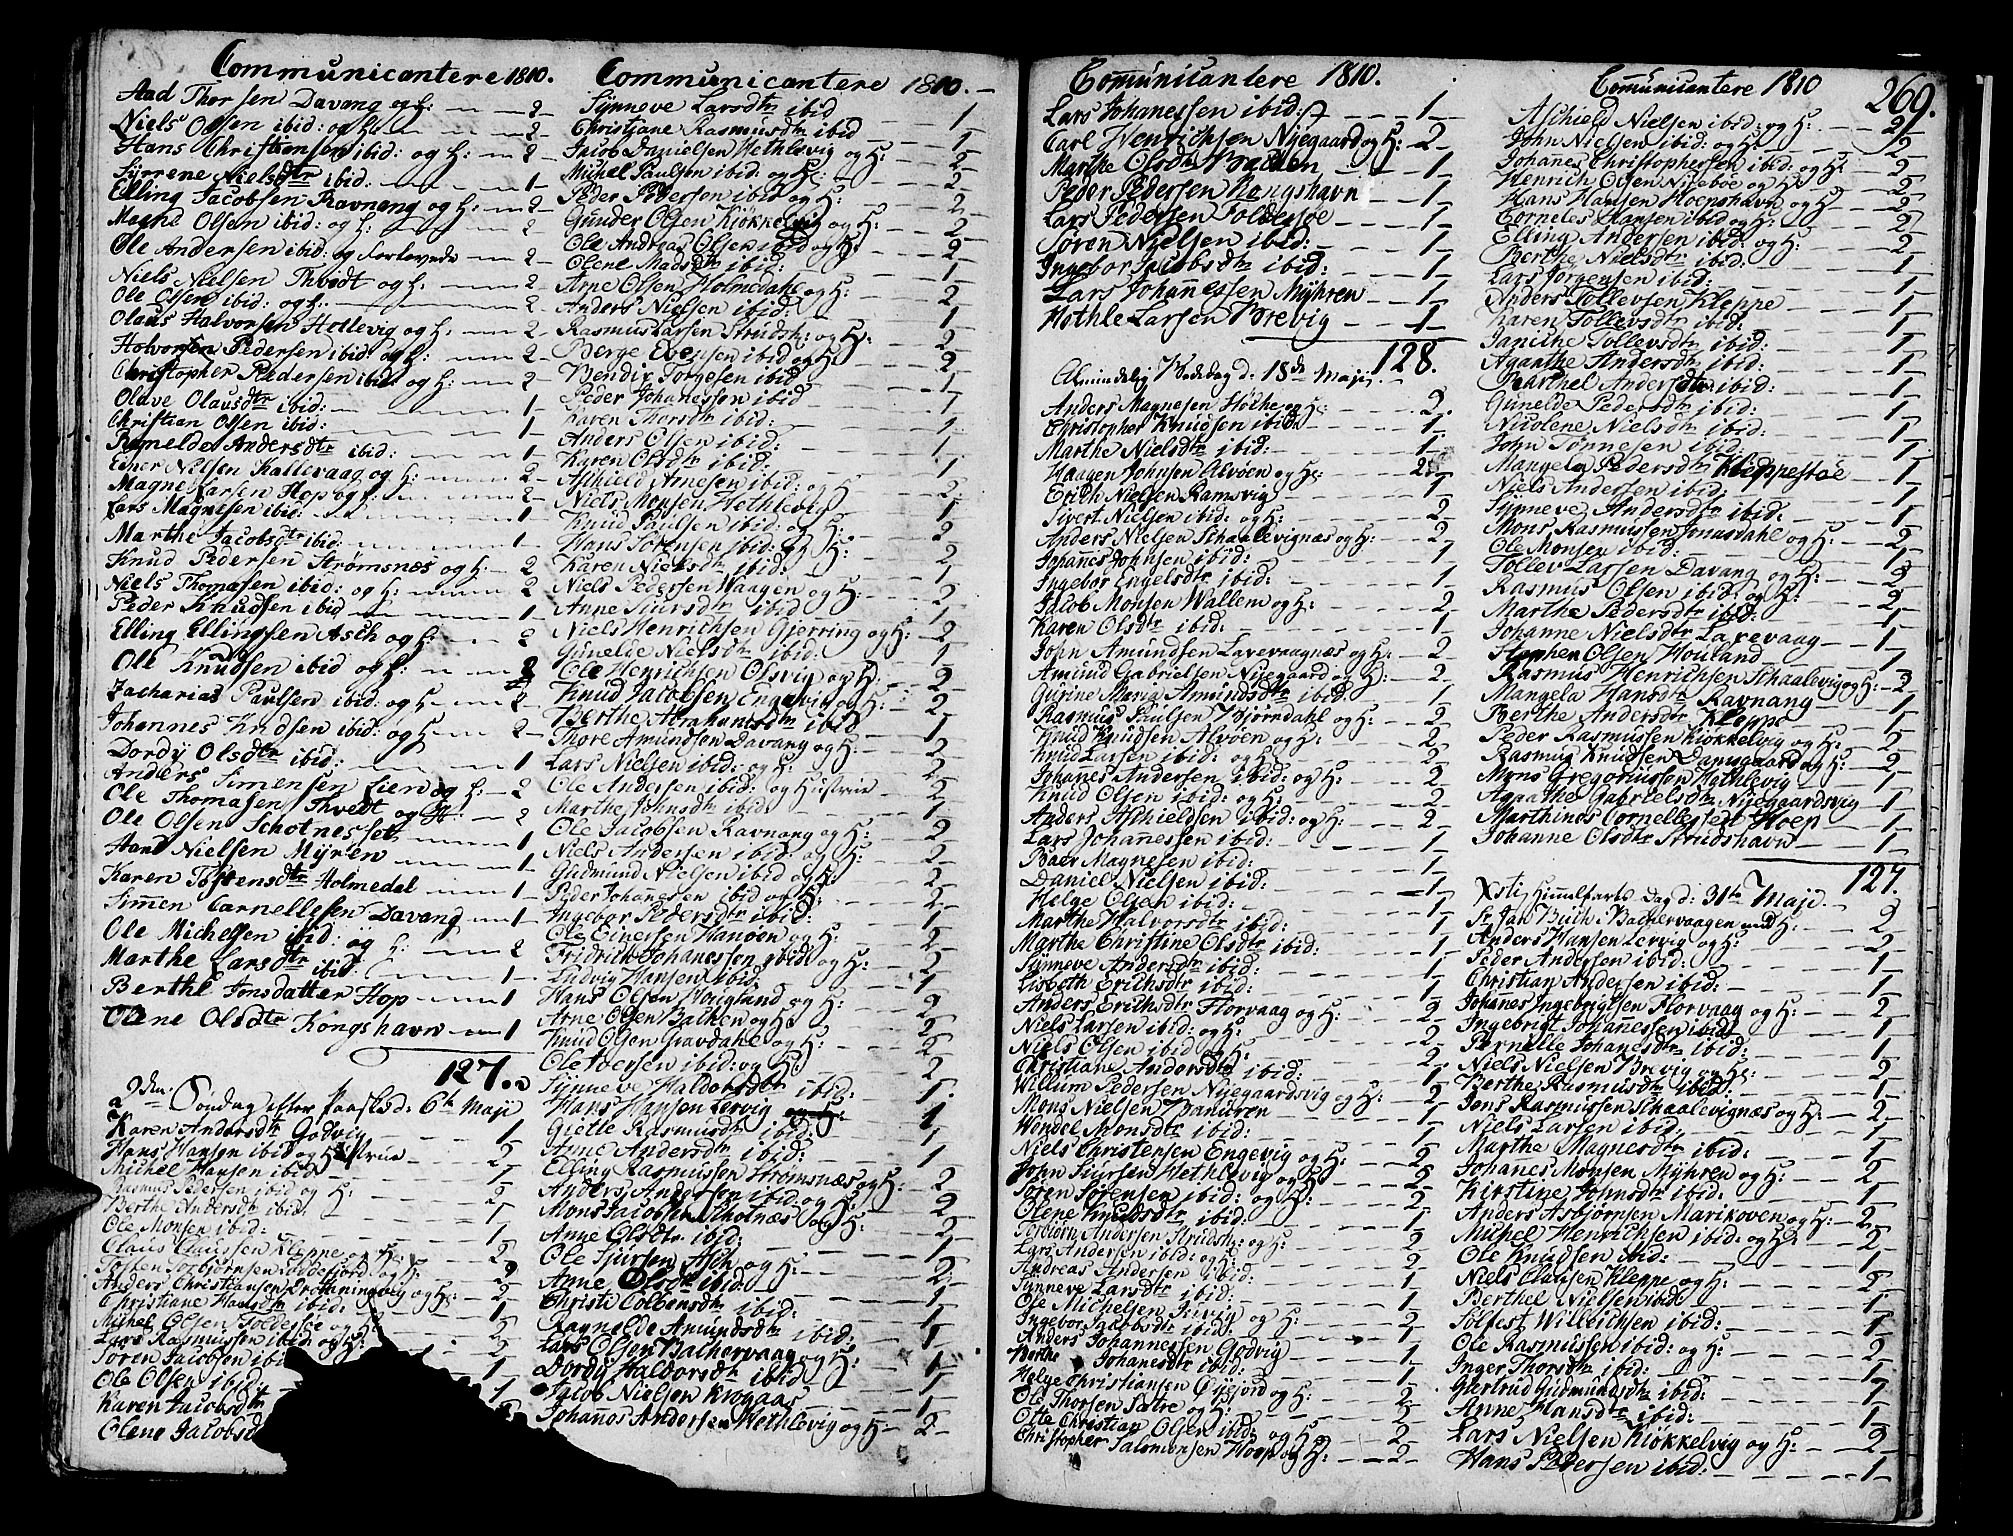 Communicantere 1810.
Aad Thorsen Davang og H: 2
Niels Olsen ibid: og H: 2
Hans Christensen ibid: og H: 2
Syrrene Nielsdtr ibid: 1
Elling Jacobsen Ravnang og H: 2
Magne Olsen ibid: og H: 2
Ole Andersen ibid: og forlovede 2
Niels Nielsen Thvedt og H: 2
Ole Olsen ibid: og H: 2
Olaus Halvorsen Hollevig og H: 2
Halvorsen Pedersen ibid: og H: 2
Christopher Pedersen ibid: og H: 2
Olave Olausdtr ibid: 1
Christian Olsen ibid: 1
Andersdtr ibid: 1
Nielsen Kallevaag og H: 2
Magne Larsen Hop og H: 2
Lars Magnesen ibid: 1
Marthe Jacobsdtr ibid: 1
Knud Pedersen Strømsnæs og H: 2
Niels Thomasen ibid: og H: 2
Peder Knudsen ibid 1
Elling Ellingsen Asch og H: 2
Ole Knudsen ibid og H: 2
Zacharias Paulsen ibid: og H 2
Johannes Knudsen ibid: og H 2
Dordÿ Olsdtr ibid: 1
Anders Simensen Lien og H: 2
Ole Thomasen Thvedt og H: 2
Ole Olsen Schotnesset 1
Hans Nielsen Mÿren 1
Karen Tostensdtr Holmedal 1
Simen Cornellesen Davang 1
Ole Michelsen ibid: og H: 2
Marthe Larsdtr ibid: 1
Berthe Jonsdatter Hop 1
Olene Olsdtr Kongshavn 1
127.
2den Søndag efter Paaske d: 6te Maji
Karen Andersdtr Godvig 1
Hans Hansen ibid og Hustrue 2
Michel Hansen ibid 1
Rasmus Pedersen ibid og H: 2
Berthe Andersdtr ibid 1
Ole Monsen ibid: 1
Claus Claussen Kleppe og H: 2
Tosten Torbjørnsen og H: 2
Anders Christiansen Dronningvig og H: 2
Christiane Hansdtr ibid: 1
Michel Olsen Foldesøe og H: 2
Lars Rasmussen ibid og H: 2
Søren Jacobsen ibid 1
Ole Olsen ibid: 1
Karen Jacobsdtr
Olene Jacobsd
Communicantere 1810.
Synneve Larsdtr ibid 1
Christiane Rasmusdtr ibid 1
Jacob Danielsen Hethlevig og H: 2
Michel Paulsen ibid: og H: 2
Peder Pedersen ibid og H: 2
Gunder Olsen Kiøkkelvig og H: 2
Ole Andreas Olsen ibid og H: 2
Olene Madsdtr ibid: 1
Arne Olsen Holmedahl og H: 2
Anders Nielsen ibid: 1
Rasmus Larsen Strudsh: og H: 2
Berge Evensen ibid og H: 2
Bendix Torgesen ibid 1
Peder Johanessen ibid 1
Karen Thorsdtr ibid: 1
Anders Olsen ibid: 1
Karen Olsdtr ibid: 1
Aschield Arnesen ibid: og H: 2
Niels Monsen Hethlevig 1
Knud Paulsen ibid: og H: 2
Hans Sørensen ibid: og H: 2
Karen Nielsdtr ibid: 1
Niels Pedersen Waagen og H: 2
Anne Siursdtr ibid 1
Niels Henrichsen Gjerring og H: 2
Gunelde Nielsdtr ibid: 1
Ole Henrichsen Olsvig og H: 2
Knud Jacobsen Engevig og H: 2
Berthe Abrahamsdtr ibid 1
Thore Amundsen Davang og H: 2
Lars Nielsen ibid: og H: 2
Ole Andersen ibid: og Hustrue 2
Marthe Johnsdtr ibid: 1
Ole Jacobsen Ravnang og H: 2
Niels Andersen ibid: og H: 2
Gudmund Nielsen ibid og H: 2
Peder Johannesen ibid og H: 2
Ingebor Pedersdtr ibid: 1
Ole Einersen Hanøen og H: 2
Fridrich Johanessen ibid og H: 2
Ludvig Hansen ibid: 1
Hans Olsen Hougland og H: 2
Arne Olsen Bakken og H: 2
Knud Olsen Gravdahl og H: 2
Ole Iversen ibid: og H: 2
Synneve Haldorsdtr ibid: 1
Hans Hansen Lervig 1
Giette Rasmusdtr ibid: 1
Anne Andersdtr ibid: 1
Elling Rasmussen Strømsnæs og H: 2
Anders Andersen ibid og H: 2
Mons Jacobsen Schotnæs og H: 2
Anne Olsdtr ibid: 1
Ole Siursen Asch og H: 2
Anne Olsdtr ibid: 1
Christi Colbensdtr ibid: 1
Ragnelde Amundsdtr ibid: 1
Lars Olsen Bachervaag og H:
Dordÿ Haldorsdtr ibid 1
Jacob Nielsen Krogaas 1
Johanes Andersen Hethlevig og H: 2
Communicantere 1810.
Lars Johanessen ibid: 1
Carl Henrichsen Nÿegaard og H: 2
Marthe Olsdtr Bratten 1
Peder Pedersen Kongshavn 1
Lars Pedersen Foldesøe 1
Søren Nielsen ibid: 1
Ingebor Jacobsdtr ibid: 1
Lars Johannessen Mÿhren 1
Hothle Larsen Brevig 1
128.
Almindelig Bededag d: 18de Maji
Anders Magnesen Holthe og H: 2
Christopher Knudsen ibid 1
Marthe Nielsdtr ibid: 1
Haagen Johnsen Alvøen og H: 2
Erich Nielsen Ramsvig 1
Sivert Nielsen ibid: og H: 2
Anders Nielsen Schaalevignæs og H: 2
Johanes Johnsen ibid: 1
Ingebor Engelsdtr ibid: 1
Jacob Monsen Wallem og H: 2
Karen Olsdtr ibid: 1
John Amundsen Lavevaagnæs og H: 2
Amund Gabrielsen Nÿegaard og H: 2
Gurine Maria Amundsdtr ibid: 1
Rasmus Paulsen Bjørndahl og H: 2
Knud Knudsen Alvøen og H: 2
Knud Larsen ibid: og H: 2
Johanes Andersen ibid: og H: 2
Knud Olsen ibid: og H: 2
Anders Aschieldsen ibid: og H: 2
Lars Johanessen ibid: 1
Baar Magnesen ibid: 1
Daniel Nielsen ibid: 1
Helge Olsen ibid: 1
Marthe Halvorsdtr ibid: 1
Marthe Christine Olsdtr ibid: 1
Synneve Andersdtr ibid: 1
Lisbeth Erichsdtr ibid: 1
Anders Erichsdtr Florvaag og H: 2
Niels Larsen ibid: og H: 2
Niels Olsen ibid og H: 2
Christiane Andersdtr ibid: 1
Willum Pedersen Nÿegaardsvig og H: 2
Mons Nielsen Banuren 1
Wendel Monsdtr ibid: 1
Niels Christensen Engevig og H: 2
John Siursen Hethlevig og H: 2
Søren Sørensen ibid: og H: 2
Olene Knudsdtr ibid: 1
Torbiörn Andersen Strudsh: og H: 2
Lars Andersen ibid: og H: 2
Andreas Andersen ibid: 1
Synneve Larsdtr ibid: 1
Ole Michelsen og H: 2
Ingebor Jacobsdtr ibid: 1
Anders Johannessen Godvig 1
Berthe Johanesdtr ibid: 1
Helge Christiansen og H: 2
Ole Thorsen Satre og H: 2
Otte Christian Olsen ibid: og H: 2
Christopher Salomonsen Hoop og H: 2
Communicantere 1810
269.
Aschield Nielsen ibid: og H: 2
John Nielsen ibid: og H: 2
Johanes Christophersen ibid: og H: 2
Henrich Olsen Nÿebøe og H: 2
Hans Hansen Hoepshavn og H: 2
Corneles Hansen ibid og H: 2
Elling Andersen ibid: og H: 2
Berthe Nielsdtr ibid: 1
Lars Jørgensen ibid: 1
Anders Tollevsen Kleppe 1
Karen Tollevsdtr ibid: 1
Janiche Tollevsdtr ibid: 1
Agaathe Andersdtr ibid: 1
Barthel Andersdtr ibid: 1
Gunelde Pedersdtr ibid: 1
Nicolene Nielsdtr ibid: 1
John Tønnesen ibid: 1
Mangela Pedersdtr Kleppestøe 1
Niels Andersen ibid: 1
Synneve Andersdtr ibid: 1
Mons Rasmussen Jonasdahl og H: 2
Ole Monsen ibid: 1
Tollev Larsen Davang og H: 2
Rasmus Olsen ibid: og H: 2
Marthe Pedersdtr ibid: 1
Johanne Nielsdtr Larevaag 1
Stephen Olsen Houland 1
Rasmus Henrichsen Schaalevig og H: 2
Mangela Hansdtr Ravnang 1
Berthe Andersdtr Kleppe 1
Peder Rasmussen Kiøkkelvig og H: 2
Rasmus Knudsen Damsgaard og H: 2
Mons Gregoriussen Hethlevig 1
Agaathe Gabrielsdtr Nÿegaardsvig 1
Marthinos Cornellesen Hoep 1
Johanne Olsdtr Strudshavn 1
127.
Xsti Himmelfarts Dag d: 31te Maji
Sr Jan Buch Bachervaagen med H: 2
Anders Hansen Lervig og H: 2
Peder Andersen ibid: 1
Christian Andersen ibid: 1
Johanes Ingebrigtsen Florvaag og H: 2
Ingebrigt Johannessen ibid 1
Pernelle Johanesdtr ibid: 1
Niels Nielsen Brevig og H: 2
Berthe Rasmusdtr ibid: 1
Jens Rasmussen Schaalevignæs og H: 2
Niels Larsen ibid: 1
Marthe Magnesdtr ibid: 1
Johanes Monsen Mÿhren og H: 2
Kirstine Johnsdtr ibid: 1
Anders Asbjørnsen Marikoven og H: 2
Michel Henrichsen ibid: og H: 2
Ole Knudsen ibid: 1
Niels Clausen Kleppe og H: 2
Berthel Nielsen ibid: 1
Solfest Willichsen ibid: 1
Ole Rasmussen ibid: og H: 2
Inger Thorsdtr ibid: 1
Giertrud Gudmundsdtr ibid: 1
Anne Hansdtr ibid: 1
Lars Nielsen Kiøkkelvig og H: 2
Hans Pedersen ibid: 1